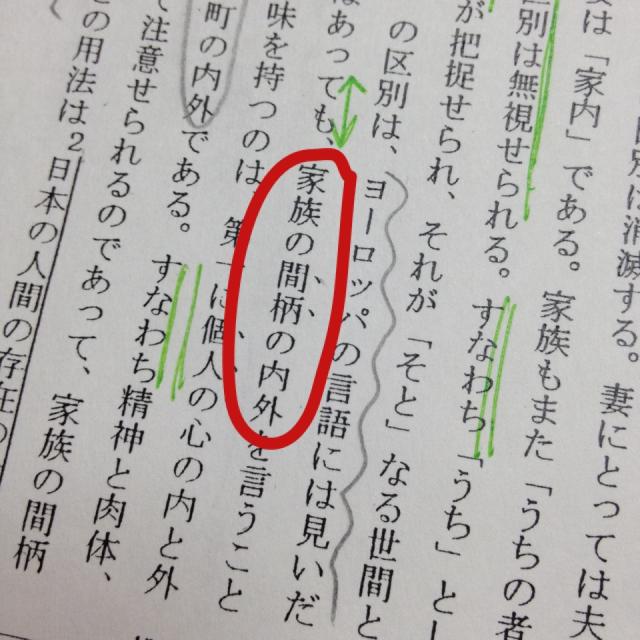 別は消滅する。妻にとっては夫
は「家内」である。家族もまた「うちの者
区別は無視せられる。すなわち「うち」とし
が把捉せられ、それが「そと」なる世間と
の区別は、ヨーロッパの言語には見いだ
はあっても、家族の間柄の内外を言うこと
味を持つのは、第一に個人の心の内と外
町の内外である。すなわち精神と肉体、
て注意せられるのであって、家族の間柄
の用法は
2 日本の人間の存在の